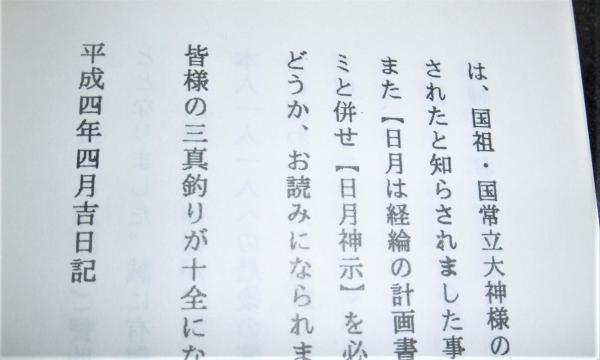 は、国祖・国常立大神様の
されたと知らされました事
また【日月は経綸の計画書
ミと併せ【日月神示】を必
どうか、お読みになられま
皆様の三真釣りが十全にな
平成四年四月吉日記